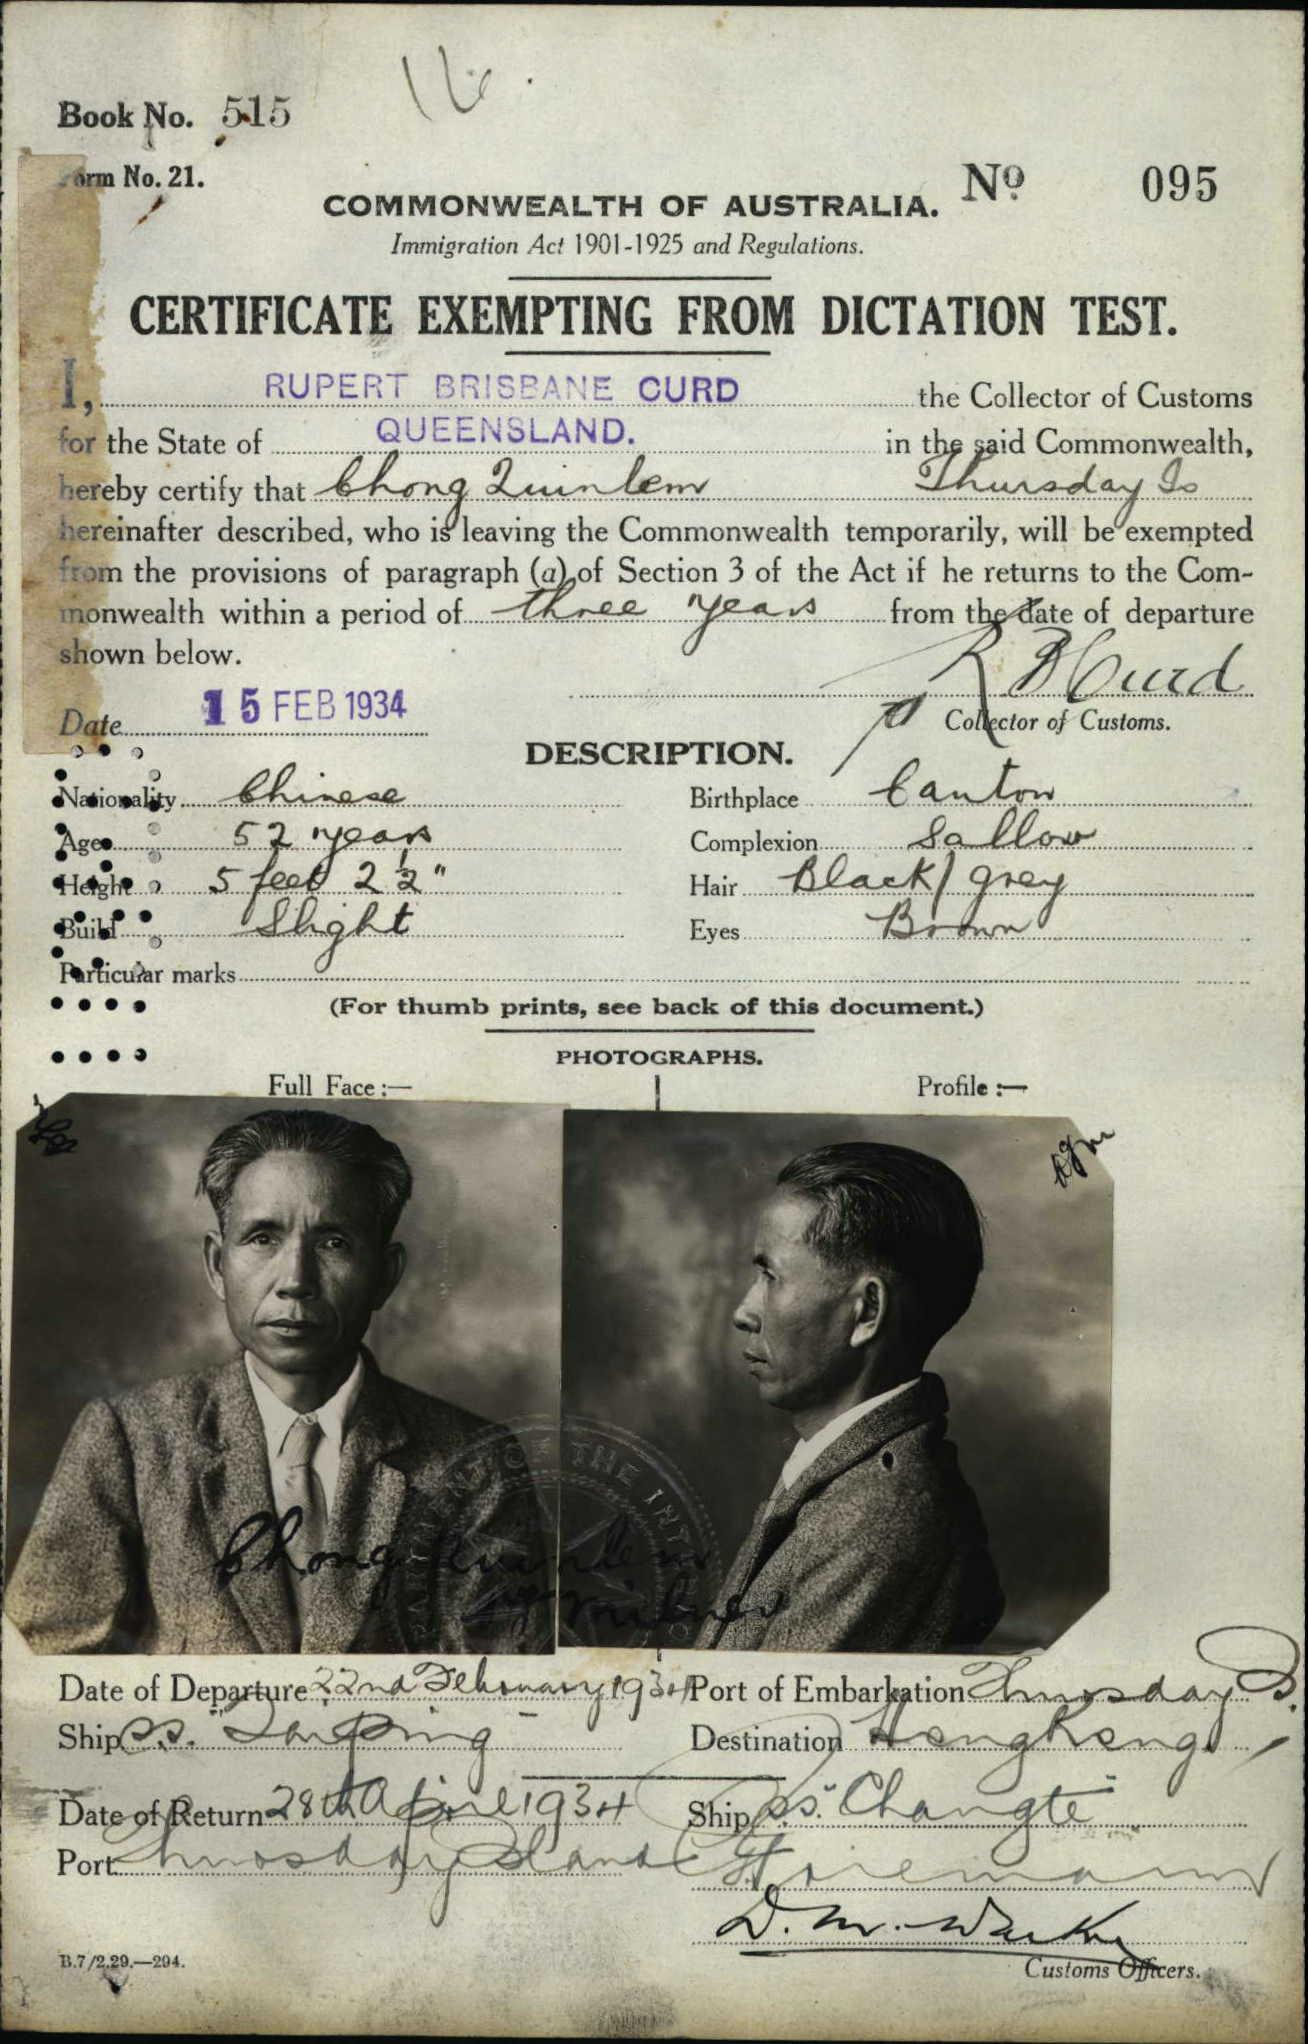 16.
Book No. 515
Form No. 21.
COMMONWEALTH OF AUSTRALIA. No 095
Immigration Act 1901-1925 and Regulations.
CERTIFICATE EXEMPTING FROM DICTATION TEST.
I, RUPERT BRISBANE CURD the Collector of Customs
for the State of QUEENSLAND. in the said Commonwealth,
hereby certify that Chong Quinlem Thursday Is
hereinafter described, who is leaving the Commonwealth temporarily, will be exempted
from the provisions of paragraph (a) of Section 3 of the Act if he returns to the Com-
monwealth within a period of three years from the date of departure
shown below.
R B Curd
Date 15 FEB 1934 Collector of Customs.
DESCRIPTION.
Nationality Chinese Birthplace Canton
Age 52 years Complexion Sallow
Height 5 feet 2 ½" Hair Black/grey
Build Slight Eyes Brown
Particular marks
(For thumb prints, see back of this document.)
PHOTOGRAPHS.
Full Face :— Profile :—
DEPARTMENT OF THE INTERIOR
Chong Quinlem
Date of Departure 22nd February 1934 Port of Embarkation Thursday Is.
Ship s.s. "Taiping" Destination HongKong
Date of Return 28th April 1934 Ship s.s. "Changte"
Port Thursday Island
D. M.
Customs Officers.
B.7/2.29.—294.